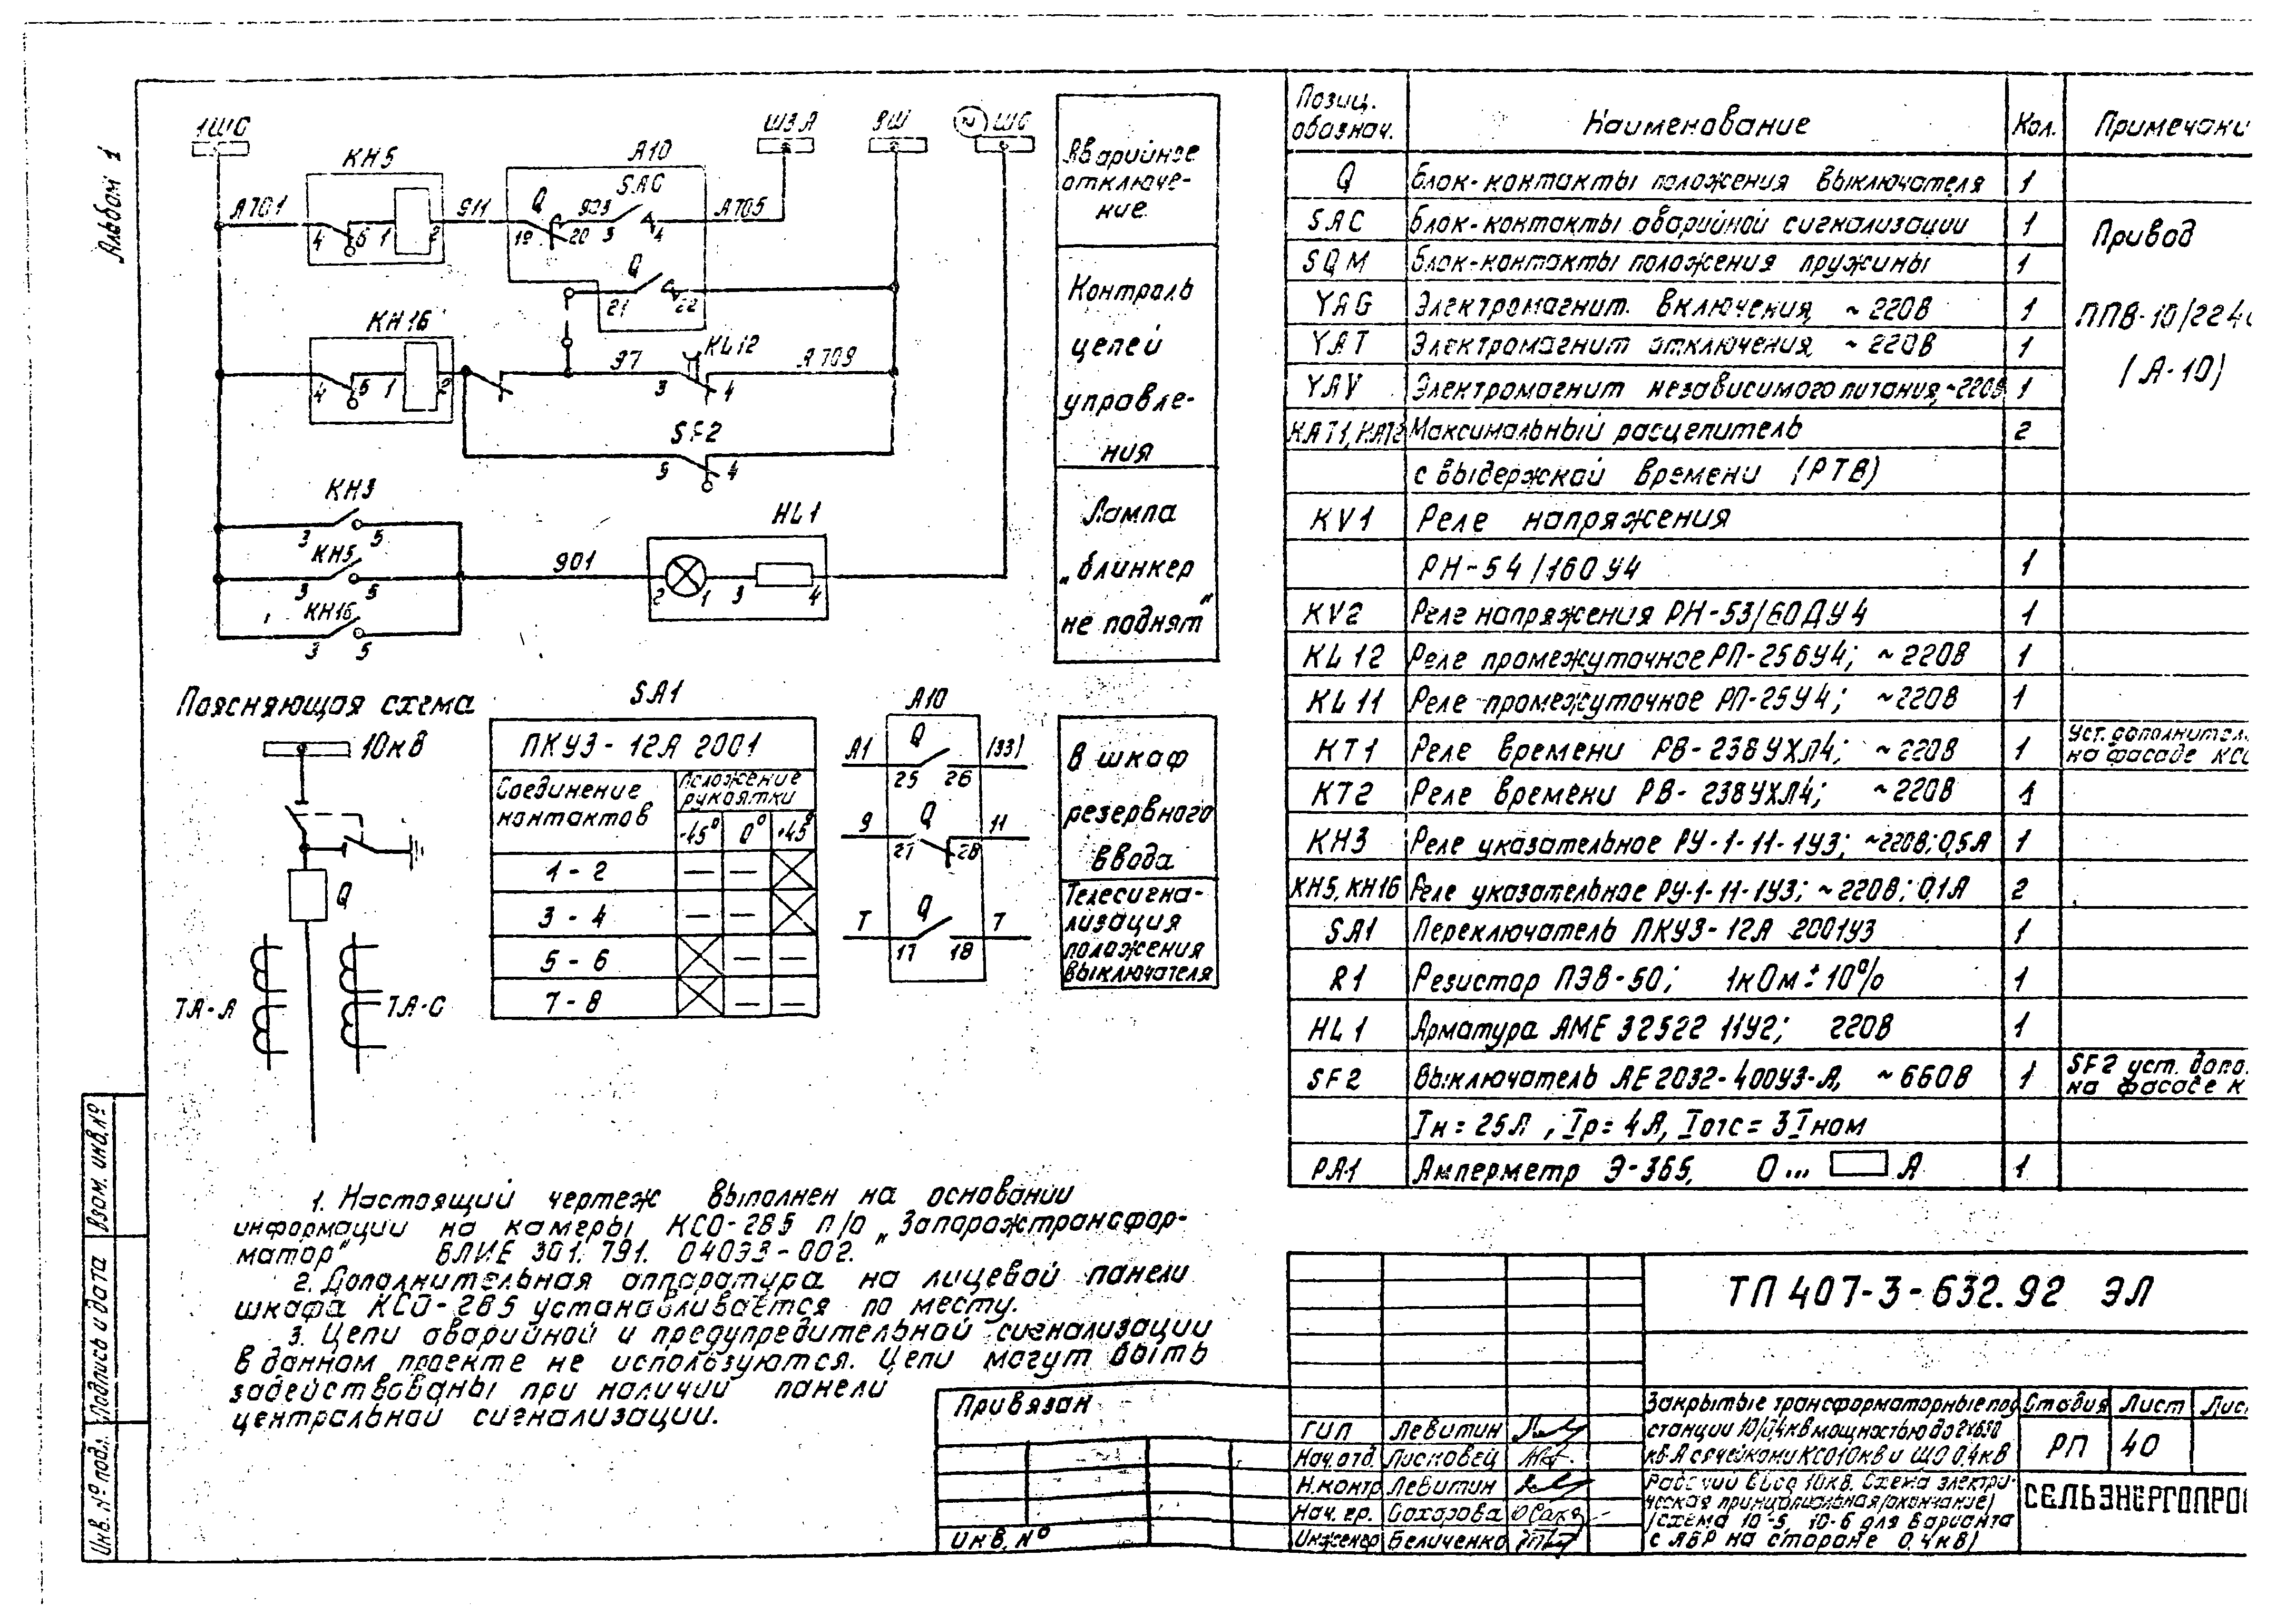 Альбом 1
1ШС
ШЗА
ВШ
~ ШС
КН5
А10
SAC
А701
4 6 1 2
911
Q
903
19 20 3 4
А705
Q
21 22
КН16
4 6 1 2
97
KL12
3 4
А709
SF2
4
КН3
3 5
КН5
3 5
КН16
3 5
901
HL1
2 1 3 4
Аварийное
отключе-
ние.
Контроль
цепей
управле-
ния
Лампа
„блинкер
не поднят"
Поясняющая схема
10кВ
Q
ТА-А
ТА-С
SA1
ПКУ3-12А 2001
Соединение
контактов
Положение
рукоятки
-45° 0° +45°
1-2 — —
3-4 — —
5-6 — —
7-8 — —
А10
А1 Q (33)
25 26
9 Q 11
27 28
Т Q Т
17 18
В шкаф
резервного
ввода
Телесигна-
лизация
положения
выключателя
1. Настоящий чертеж выполнен на основании
информации на камеры КСО-285 п/о „Запорожтрансфор-
матор" ВЛИЕ 301. 791. 04033-002.
2. Дополнительная аппаратура на лицевой панели
шкафа КСО-285 устанавливается по месту.
3. Цепи аварийной и предупредительной сигнализации
в данном проекте не используются. Цепи могут быть
задействованы при наличии панели
центральной сигнализации.
Позиц. обознач. Наименование Кол. Примечани
Q Блок-контакты положения выключателя 1
SAC Блок-контакты аварийной сигнализации 1
SQM Блок-контакты положения пружины 1
YAG Электромагнит. включения, ~220В 1
YAT Электромагнит отключения, ~220В 1
YAV Электромагнит независимого питания, ~220В 1
Привод
ППВ-10/224
(А-10)
КАТ1, КАТ2 Максимальный расцепитель 2
с выдержкой времени (РТВ)
KV1 Реле напряжения
РН-54/160У4 1
KV2 Реле напряжения РН-53/60ДУ4 1
KL12 Реле промежуточное РП-256У4; ~220В 1
KL11 Реле промежуточное РП-25У4; ~220В 1
КТ1 Реле времени РВ-238УХЛ4; ~220В 1 Уст. дополнител.
на фасаде КСО
КТ2 Реле времени РВ-238УХЛ4; ~220В 1
КН3 Реле указательное РУ-1-11-1У3; ~220В; 0,5А 1
КН5, КН16 Реле указательное РУ-1-11-1У3; ~220В; 0,1А 2
SA1 Переключатель ПКУ3-12А 2001У3 1
R1 Резистор ПЭВ-50; 1кОм ± 10% 1
HL1 Арматура АМЕ 32522 11У2; 220В 1
SF2 Выключатель АЕ2032-400У3-А, ~660В 1 SF2 уст. допо.
на фасаде К
Iн = 25А, Iр = 4А, Iотс = 3Iном
РА1 Амперметр Э-365, 0... А 1
ТП 407-3-632.92 ЭЛ
Привязан
Инв. №
ГИП Левитин
Нач.отд. Лисковец
Н.контр Левитин
Нач. гр. Сахарова
Инженер Беличенко
Закрытые трансформаторные под
станции 10/0,4кВ мощностью до 2х630
кВ·А с ячейками КСО 10кВ и ЩО 0,4кВ
Рабочий ввод 10кВ. Схема электри-
ческая принципиальная (окончание)
(схема 10-5, 10-6 для варианта
с АВР на стороне 0,4кВ)
Стадия Лист Лис
РП 40
СЕЛЬЭНЕРГОПРОЕ
Взам. инв.№
Подпись и дата
Инв. № подл.